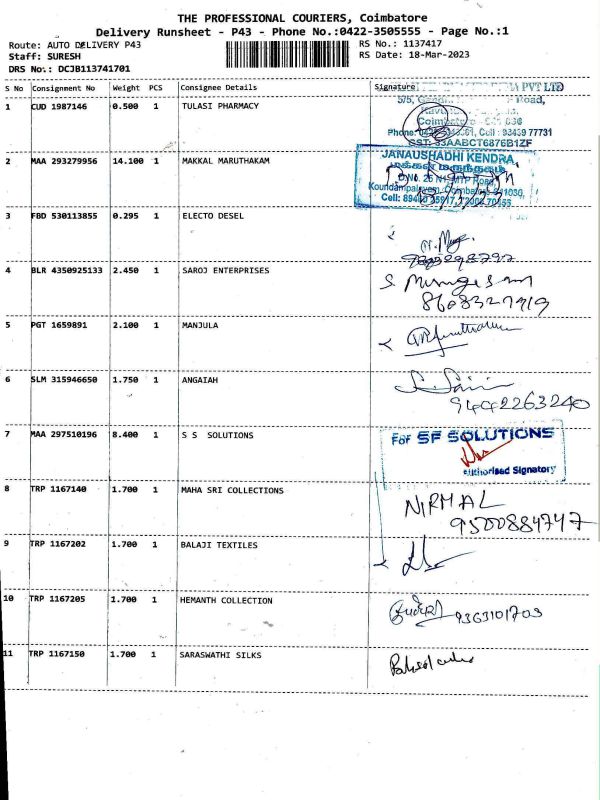 THE PROFESSIONAL COURIERS, Coimbatore
Delivery Runsheet - P43 - Phone No.:0422-3505555 - Page No.:1
Route: AUTO DELIVERY P43
RS No.: 1137417
Staff: SURESH
RS Date: 18-Mar-2023
DRS No.: DCJB113741701
S No Consignment No Weight PCS Consignee Details Signature
PVT LTD
5/5, Road,
Coimbatore
Phone: Cell : 93439 77731
GST: 33AABCT6876B1ZF
1 CUD 1987146 0.500 1 TULASI PHARMACY
2 MAA 293279956 14.100 1 MAKKAL MARUTHAKAM
JANAUSHADHI KENDRA,
மக்கள் மருந்தகம்
MTP Road,
Koundampalayam, Coimbatore
Cell:
3 FBD 530113855 0.295 1 ELECTO DESEL
4 BLR 4350925133 2.450 1 SAROJ ENTERPRISES
S. Murugesan
8608327919
5 PGT 1659891 2.100 1 MANJULA
6 SLM 315946650 1.750 1 ANGAIAH
9442263240
7 MAA 297510196 8.400 1 S S SOLUTIONS
For SF SOLUTIONS
Authorised Signatory
8 TRP 1167140 1.700 1 MAHA SRI COLLECTIONS
NIRMAL
9500884747
9 TRP 1167202 1.700 1 BALAJI TEXTILES
10 TRP 1167205 1.700 1 HEMANTH COLLECTION
9363101703
11 TRP 1167150 1.700 1 SARASWATHI SILKS